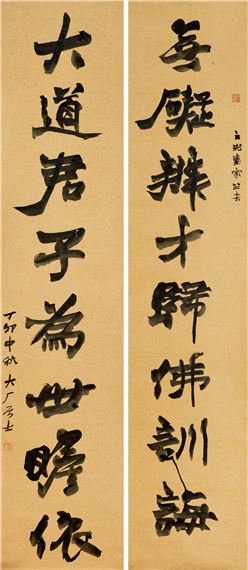 無礙辯才歸佛訓誨
大道君子為世瞻依
丁卯中秋大厂居士